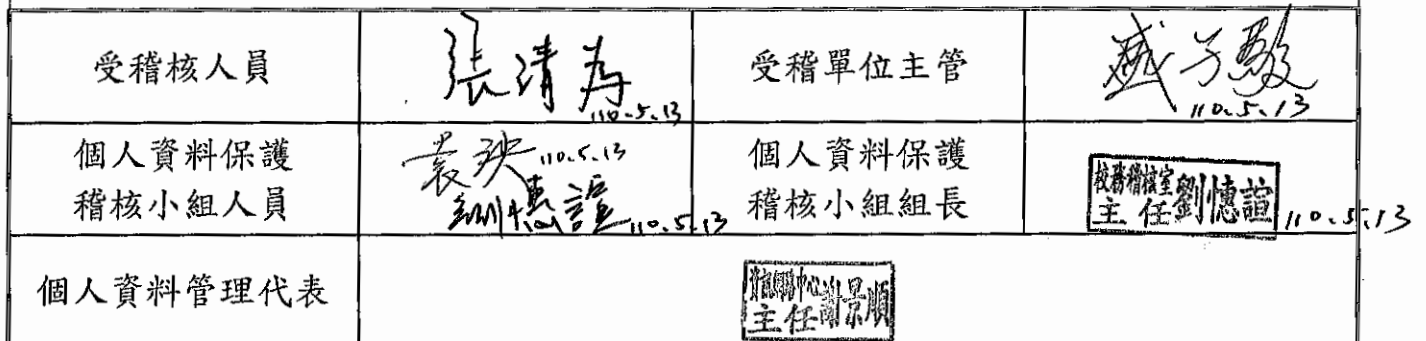 受稽核人員
張清為
110.5.13
受稽單位主管
盛子駿
110.5.13
個人資料保護
稽核小組人員
袁瑛 110.5.13
劉憶諠 110.5.13
個人資料保護
稽核小組組長
校務稽核室
主任 劉憶諠 110.5.13
個人資料管理代表
中心
主任 謝景順